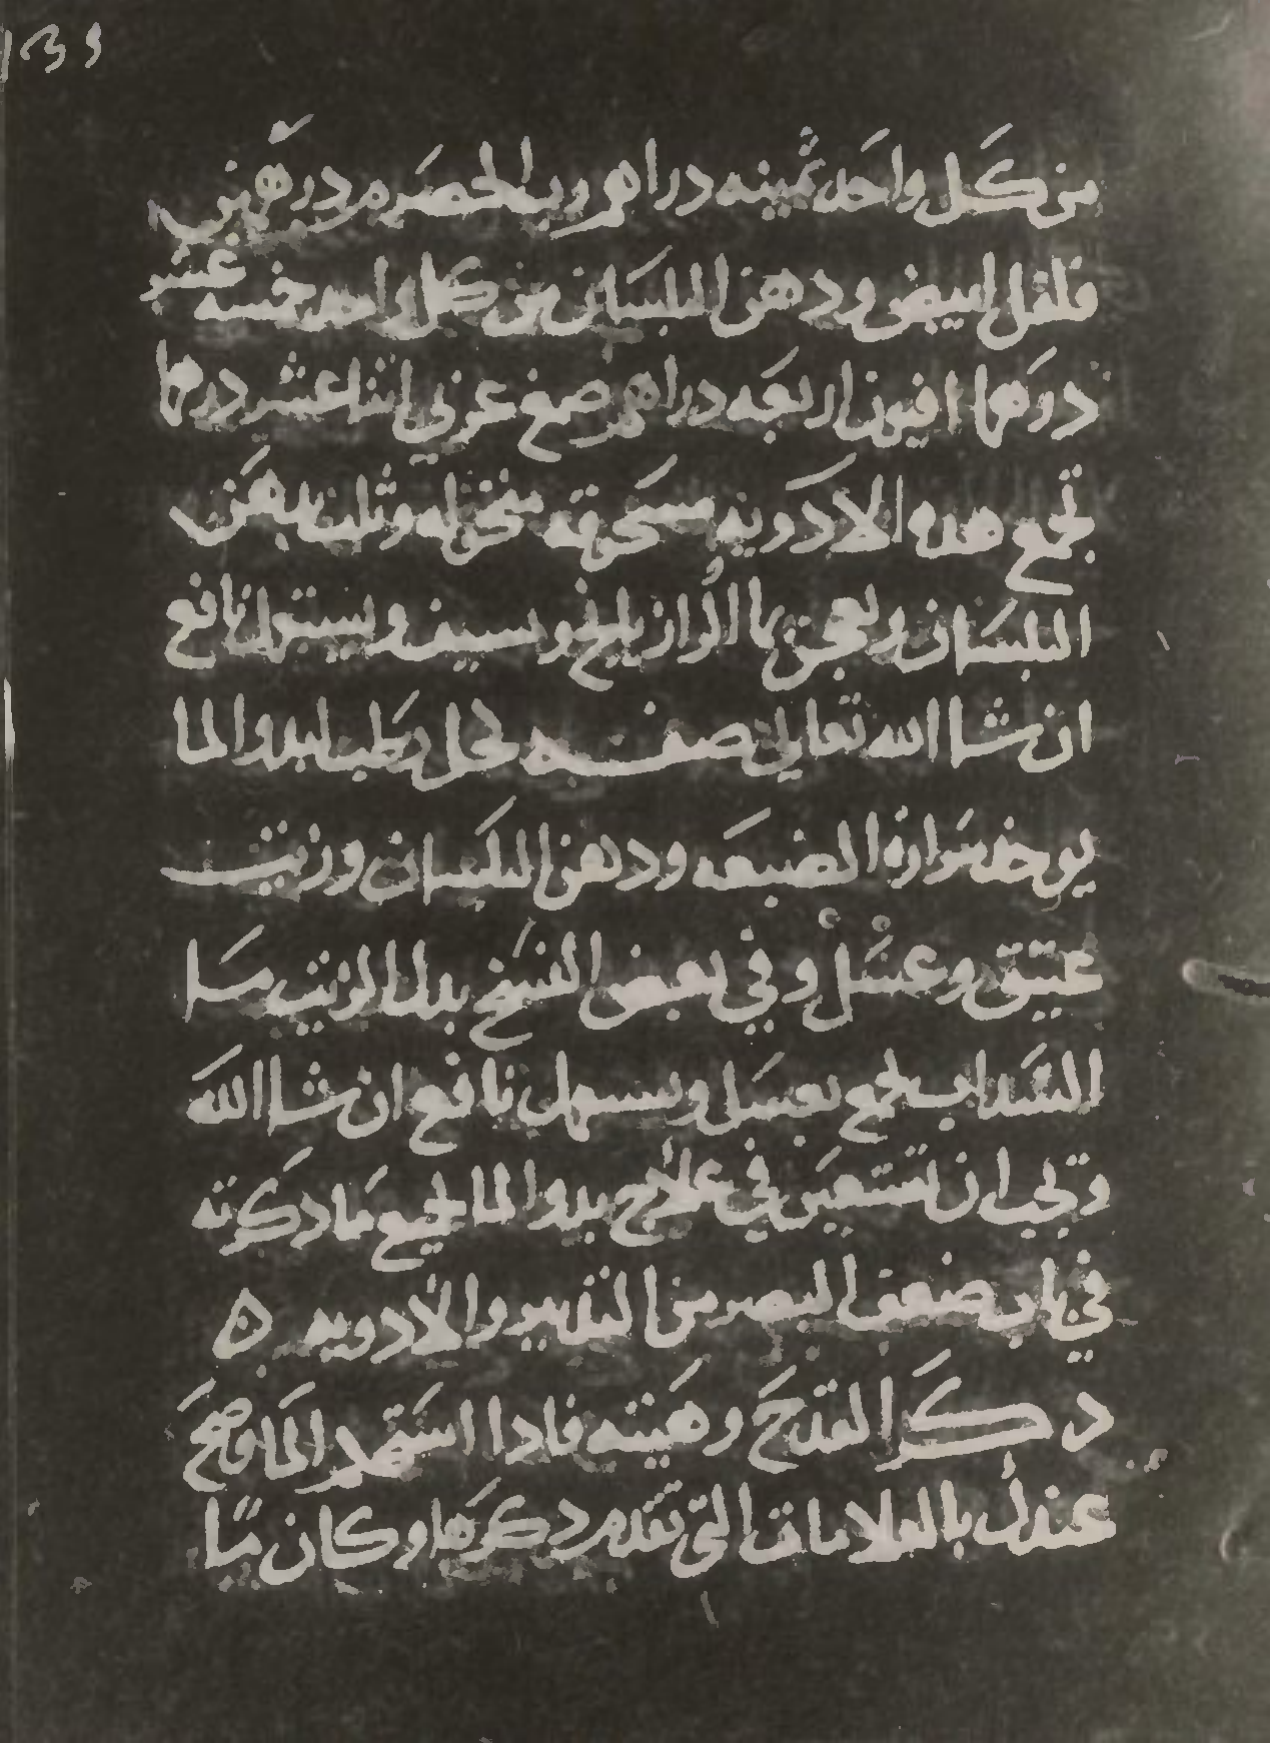 من كل واحد ثمينه دراهم ورب الحصرم درهمين
فلفل ابيض ودهن البلسان من كل واحد خمسه عشر
درهما افيون اربعه دراهم صمغ عربي اثنا عشر درهما
تجمع هده الادويه مسحوقه منخوله وتلت بدهن
البلسان وتعجن بما الرازيانج ويستعمل نافع
ان شا الله تعالى صفه كحل رطب لبدو الما
يوخد مرارة الضبعه ودهن البلسان وزيت
عتيق وعسل وفي بعض النسخ بدل الزيت ما
السداب يجمع بعسل ويستعمل نافع ان شا الله
ويجب ان تستعين في علاج بدو الما بجميع ما دكرته
في باب ضعف البصر من التدبير والادويه ه
دكر القدح وهيته فادا استحكم الما وصح
عندك بالعلامات التي تقدم دكرها وكان مما